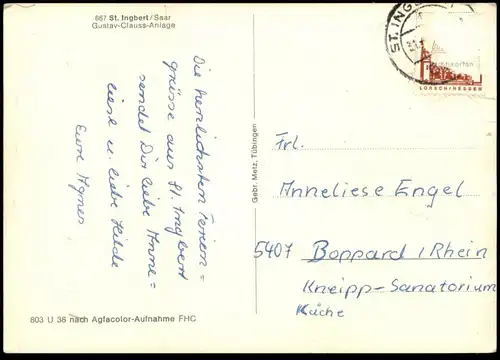 667 St. Ingbert/Saar
Gustav-Clauss-Anlage
Die herzlichsten Ferien=
grüsse aus St. Ingbert
sendet Dir liebe Anne=
liese u. liebe Hilde
Eure Agnes
803 U 36 nach Agfacolor-Aufnahme FHC
Gebr. Metz, Tübingen
ST. INGB
LORSCH/HESSEN
Frl.
Anneliese Engel
5407 Boppard/Rhein
Kneipp-Sanatorium
Küche